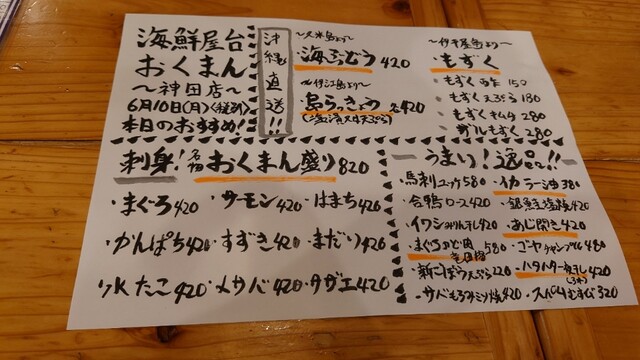 海鮮屋台
おくまん
〜神田店〜
6月10日(月)〈税別〉
本日のおすすめ!
沖縄直送!!
〜久米島より〜
海ぶどう 420
〜伊江島より〜
島らっきょう 各420
(塩漬 又は 天ぷら)
〜伊平屋島より〜
・もずく
・もずく 酢 150
・もずく天ぷら 180
・もずくキムチ 280
刺身! 名物 おくまん盛り 820
・まぐろ 420 ・サーモン 420 ・はまち 420
・かんぱち 420 ・すずき 420 ・まだい 420
・水だこ 420 ・〆サバ 420 ・サザエ 420
うまい!逸品!!
・馬刺ユッケ 580
・イカラー油 380
・合鴨ロース 420
・銀兜塩焼 420
・イワシみりん干し 420
・あじ開き 420
・まぐろのど肉竜田揚 580
・ゴーヤチャンプル 480
・新ごぼう天ぷら 220
・ハタハタ一夜干し 420
・サバもろみミソ焼 420
・スパムむすび 320